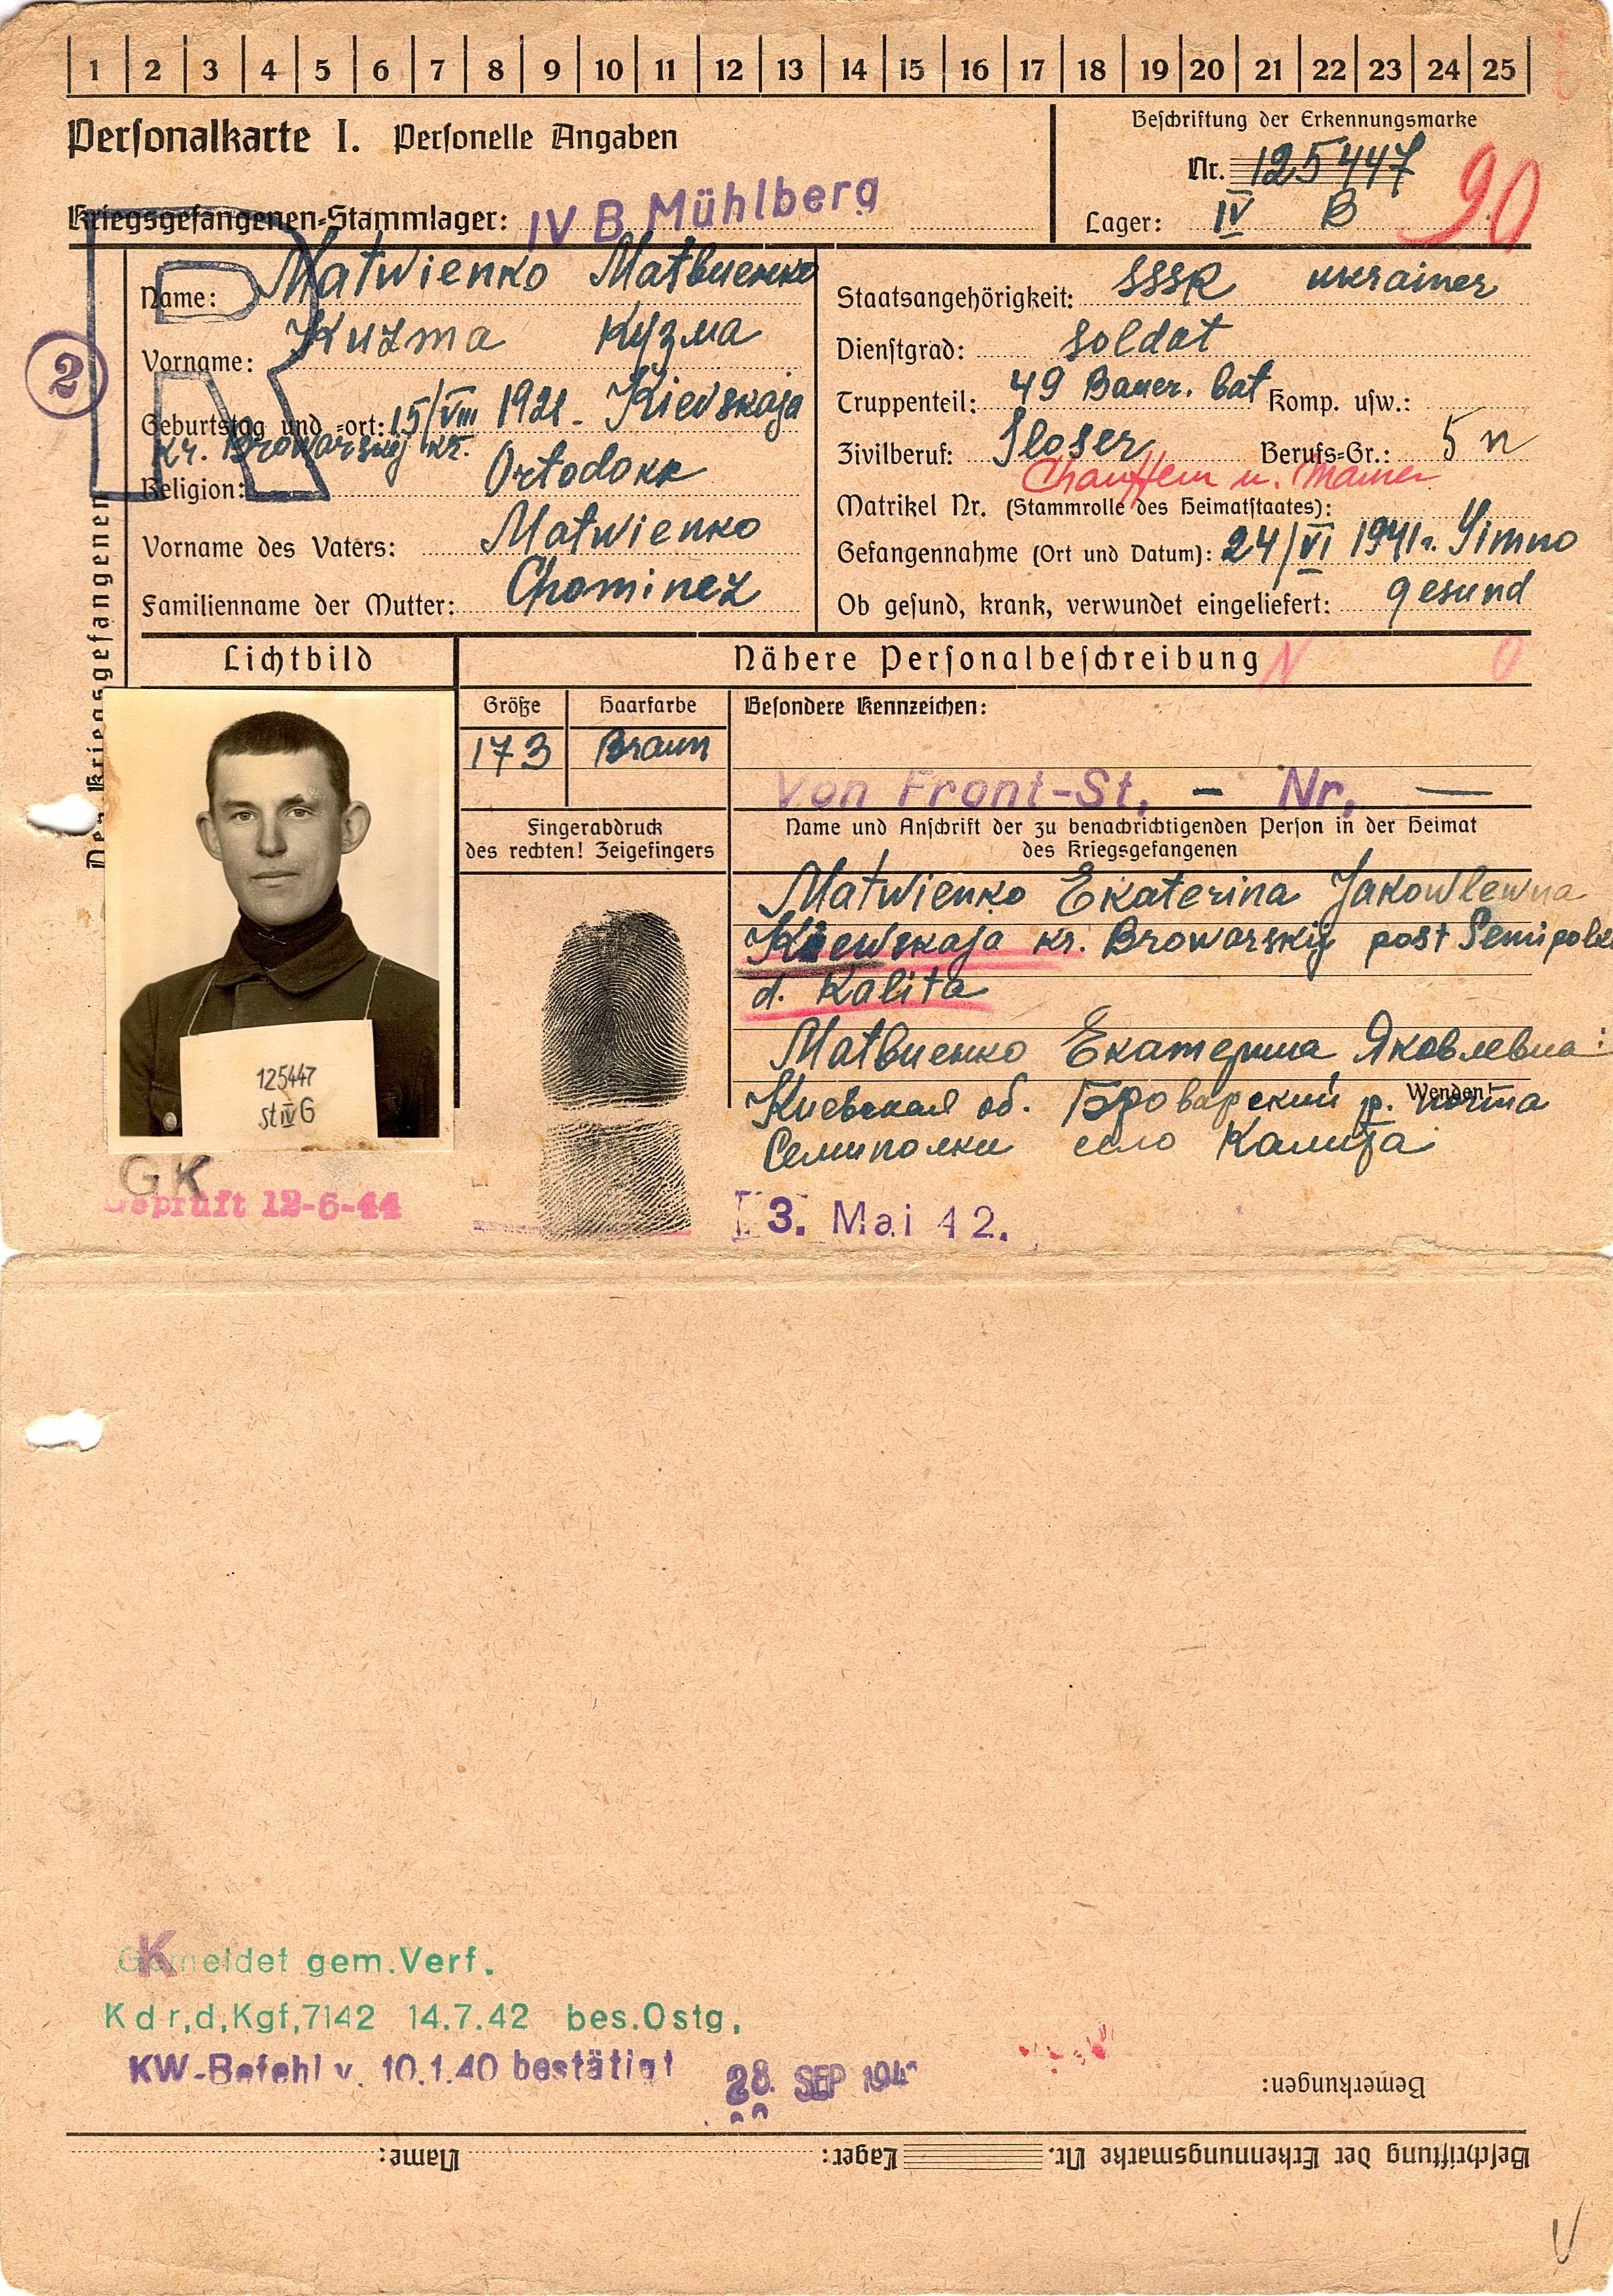 1 2 3 4 5 6 7 8 9 10 11 12 13 14 15 16 17 18 19 20 21 22 23 24 25
Personalkarte I. Personelle Angaben
Beschriftung der Erkennungsmarke
Nr. 125447
90
Kriegsgefangenen-Stammlager: IV B Mühlberg
Lager: IV B
R
2
Des Kriegsgefangenen
Name: Matwienko Матвиенко
Vorname: Kuzma Кузма
Geburtstag und -ort: 15/VIII 1921. Kievskaja
kr. Browarskij kr.
Religion: Ortodokx
Vorname des Vaters: Matwienko
Familienname der Mutter: Chominez
Staatsangehörigkeit: SSSR ukrainer
Dienstgrad: Soldat
Truppenteil: 49 Bauer. bat Komp. usw.:
Zivilberuf: Sloser Berufs-Gr.: 5 n
Chauffeur u.
Matrikel Nr. (Stammrolle des Heimatstaates):
Gefangennahme (Ort und Datum): 24/VI 1941 r. Simno
Ob gesund, krank, verwundet eingeliefert: gesund
Lichtbild
Nähere Personalbeschreibung
N 0
Größe Haarfarbe Besondere Kennzeichen:
173 Braun
Von Front-St. – Nr. —
Fingerabdruck
des rechten! Zeigefingers
Name und Anschrift der zu benachrichtigenden Person in der Heimat
des Kriegsgefangenen
Matwienko Ekaterina Jakowlewna
Kiewskaja kr. Browarskij post Semipolki
d. Kalita
Матвиенко Екатерина Яковлевна:
Киевская об. Броварский р. почта
Wenden!
Семиполки село Калита
125447
St IV G
GK
Geprüft 12-6-44
3. Mai 42.
K
Gemeldet gem. Verf.
Kdr,d,Kgf,7142 14.7.42 bes.Ostg,
KW-Befehl v. 10.1.40 bestätigt
28. SEP 194
Bemerkungen:
Beschriftung der Erkennungsmarke Nr. Lager: Name: